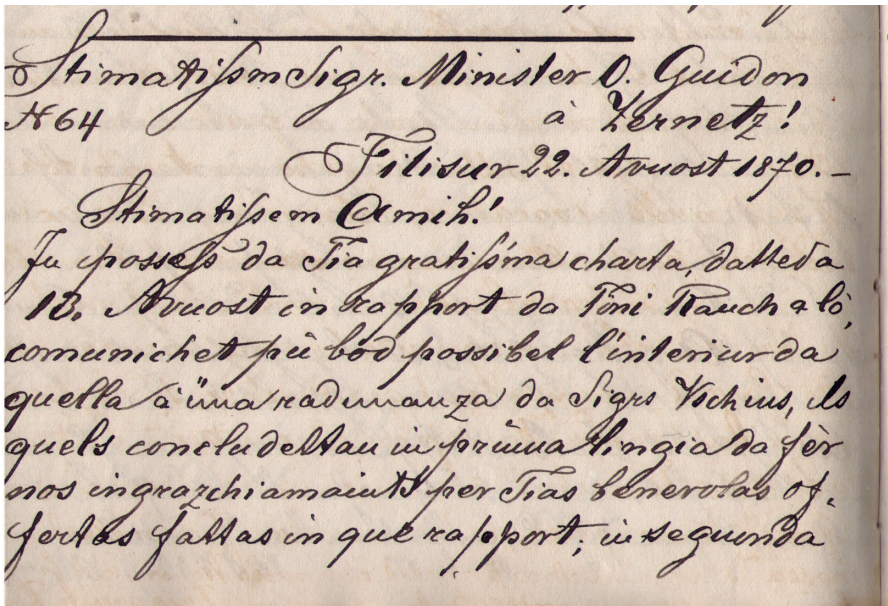 Stimatissm Sigr. Minister O. Guidon
N 64 à Zernetz!
Filisur 22. Avuost 1870.–
Stimatissem Amih!
In possess da Tia gratissima charta, datteda
13. Avuost in rapport da Töni Rauch & lò,
comunichet pü bod possibel l'interiur da
quella à üna radunanza da Sigrs Vschins, ils
quels concludettan in prüma lingia da fèr
nos ingrazchiamaints per Tias benevolas of-
fertas fattas in que rapport; in seguonda